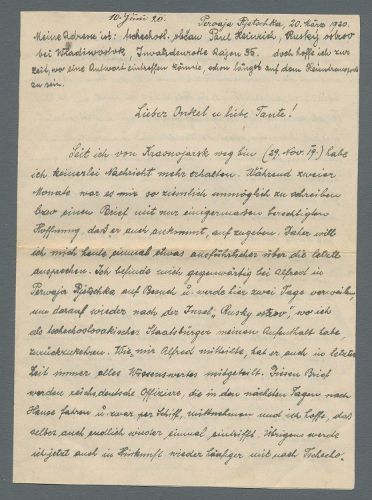 10. Juni 20.
Perwaja Rjetschka, 20. März 1920.
Meine Adresse ist: tschechosl. občan Paul Heinrich, Rusky ostrov
bei Wladiwostok, Invalidenrotte Rajon 36. doch hoffe ich zur
Zeit, wo eine Antwort eintreffen könnte, schon längst auf dem Heimtransport
zu sein.
Lieber Onkel u liebe Tante!
Seit ich von Krasnojarsk weg bin (29. Nov. 19.) habe
ich keinerlei Nachricht mehr erhalten. Während zweier
Monate war es mir so ziemlich unmöglich zu schreiben
bzw einen Brief mit nur einigermassen berechtigten
Hoffnung, daß er auch ankommt, aufzugeben. Daher will
ich mich heute einmal etwas ausführlicher über die letzte
aussprechen. Ich befinde mich gegenwärtig bei Alfred in
Perwaja Rjetschka auf Besuch u. werde hier zwei Tage verweilen,
um darauf wieder nach der Insel, "Rusky ostrov", wo ich
als tschechoslovakischer Staatsbürger meinen Aufenthalt habe,
zurückzukehren. Wie mir Alfred mitteilte, hat er euch in letzter
Zeit immer alles Wissenswertes mitgeteilt. Diesen Brief
werden reichsdeutsche Offiziere, die in den nächsten Tagen nach
Hause fahren u. zwar per Schiff, mitnehmen und ich hoffe, daß
selber auch endlich wieder einmal eintrifft. Übrigens werde
ich jetzt auch in Hinkunft wieder häufiger mit nach Tschecho-